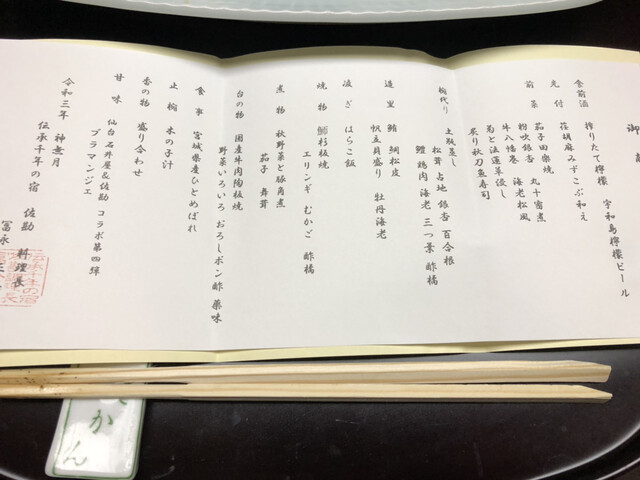 御
食前酒 搾りたて檸檬 宇和島檸檬ビール
先付 荏胡麻みずこぶ和え
前菜 茄子田楽焼 丸十蜜煮
粉吹銀杏 海老松風
牛八幡巻
菊と法蓮草浸し
炙り秋刀魚寿司
椀代り 土瓶蒸し
松茸 占地 銀杏 百合根
鱧 鶏肉 海老 三つ葉 酢橘
造里 鮪 鯛松皮
帆立貝盛り 牡丹海老
凌ぎ はらこ飯
焼物 鰤杉板焼
エリンギ むかご 酢橘
煮物 秋野菜と豚角煮
茄子 舞茸
台の物 国産牛肉陶板焼
野菜いろいろ おろしポン酢 薬味
食事 宮城県産ひとめぼれ
止椀 木の子汁
香の物 盛り合わせ
甘味 仙台石井屋&佐勘 コラボ第四弾
ブラマンジェ
令和三年 神無月
伝承千年の宿 佐勘 料理長
冨永
かん